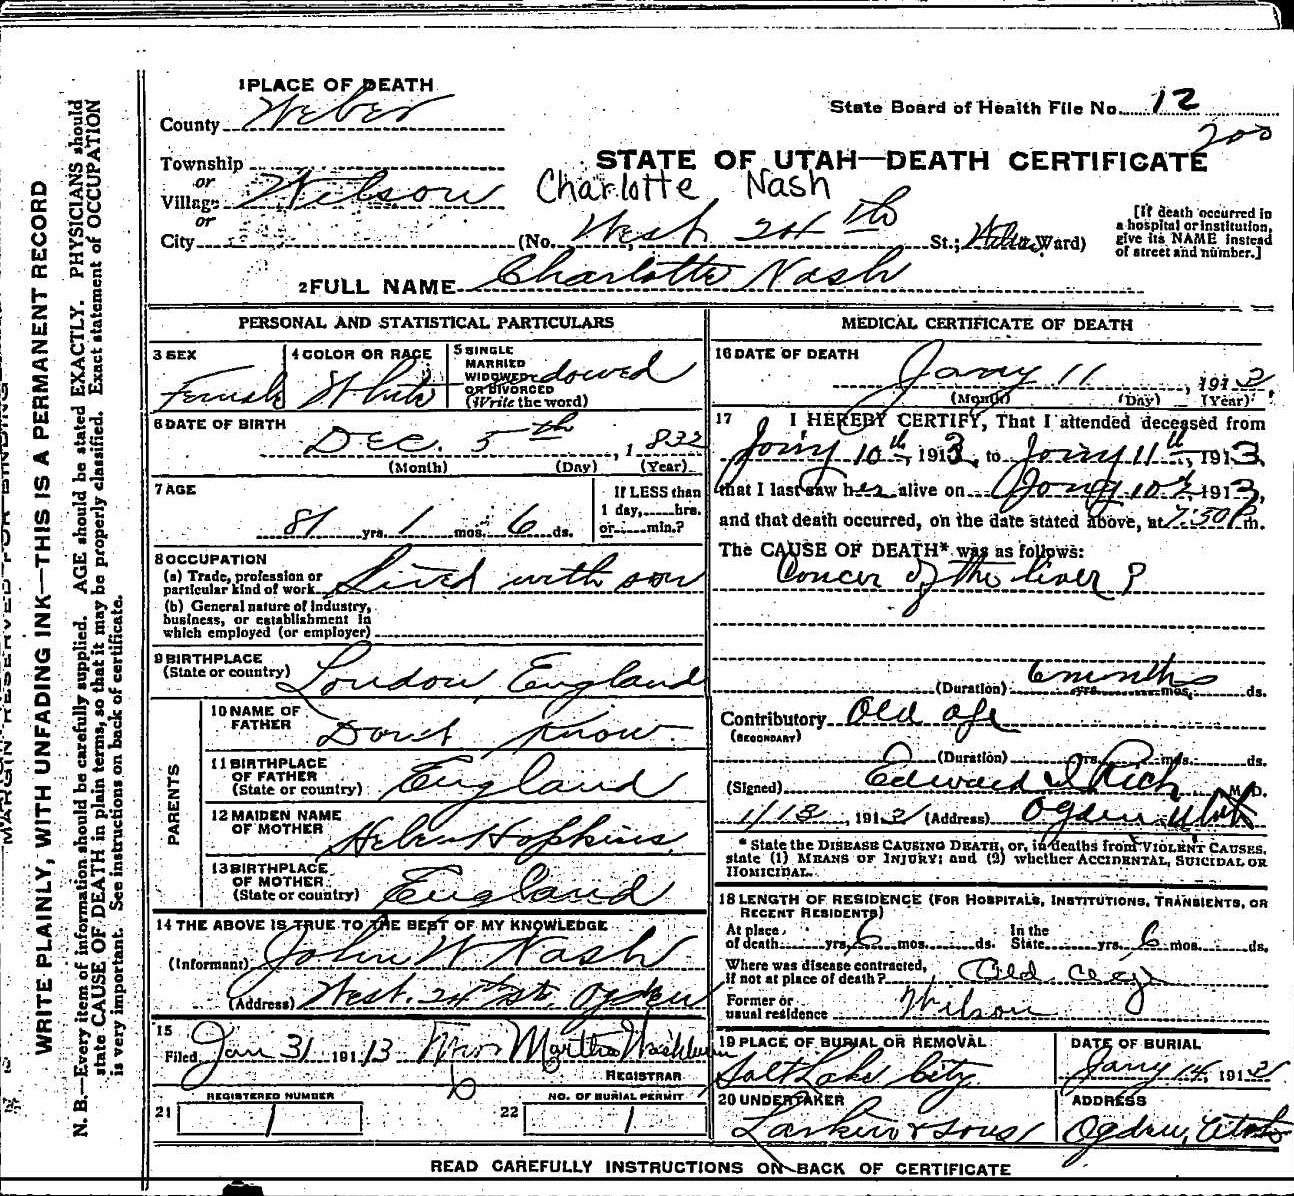 1 PLACE OF DEATH
County Weber
State Board of Health File No. 12
200
Township
or
Village Wilson
or
City
STATE OF UTAH—DEATH CERTIFICATE
Charlotte Nash
(No. West 24th St.; Ward)
[If death occurred in a hospital or institution, give its NAME instead of street and number.]
2 FULL NAME Charlotte Nash
PERSONAL AND STATISTICAL PARTICULARS
3 SEX Female
4 COLOR OR RACE White
5 SINGLE MARRIED WIDOWED OR DIVORCED (Write the word) dowed
6 DATE OF BIRTH Dec. 5th, 1832
(Month) (Day) (Year)
7 AGE 81 yrs. 1 mos. 6 ds.
If LESS than 1 day, hrs. or min.?
8 OCCUPATION
(a) Trade, profession or particular kind of work Lived with son
(b) General nature of industry, business, or establishment in which employed (or employer)
9 BIRTHPLACE (State or country) London, England
PARENTS
10 NAME OF FATHER Don't Know.
11 BIRTHPLACE OF FATHER (State or country) England
12 MAIDEN NAME OF MOTHER Helen Hopkins
13 BIRTHPLACE OF MOTHER (State or country) England
14 THE ABOVE IS TRUE TO THE BEST OF MY KNOWLEDGE
(Informant) John W Nash
(Address) West. 24th St, Ogden
15
Filed Jan 31 1913 Mrs Martha Washburn
REGISTRAR
REGISTERED NUMBER
21 1
NO. OF BURIAL PERMIT
22 1
MEDICAL CERTIFICATE OF DEATH
16 DATE OF DEATH
Jany 11, 1912
(Month) (Day) (Year)
17 I HEREBY CERTIFY, That I attended deceased from
Jany 10th, 1913, to Jany 11th, 1913,
that I last saw her alive on Jany 10th 1913,
and that death occurred, on the date stated above, at 7:30 P m.
The CAUSE OF DEATH* was as follows:
Cancer of the liver ?
(Duration) 6 months yrs. mos. ds.
Contributory Old age
(SECONDARY)
(Duration) yrs. mos. ds.
(Signed) Edward I Rich M. D.
1/13, 1912 (Address) Ogden Utah
* State the DISEASE CAUSING DEATH, or, in deaths from VIOLENT CAUSES,
state (1) MEANS OF INJURY; and (2) whether ACCIDENTAL, SUICIDAL OR
HOMICIDAL.
18 LENGTH OF RESIDENCE (FOR HOSPITALS, INSTITUTIONS, TRANSIENTS, OR
RECENT RESIDENTS)
At place of death yrs. 6 mos. ds. In the State yrs. 6 mos. ds.
Where was disease contracted, if not at place of death? Old age
Former or usual residence Wilson
19 PLACE OF BURIAL OR REMOVAL Salt Lake City
DATE OF BURIAL Jany 14, 1912
20 UNDERTAKER Larkin & Sons
ADDRESS Ogden, Utah
READ CAREFULLY INSTRUCTIONS ON BACK OF CERTIFICATE
MARGIN RESERVED FOR BINDING
WRITE PLAINLY, WITH UNFADING INK—THIS IS A PERMANENT RECORD
N. B.—Every item of information should be carefully supplied. AGE should be stated EXACTLY. PHYSICIANS should
state CAUSE OF DEATH in plain terms, so that it may be properly classified. Exact statement of OCCUPATION
is very important. See instructions on back of certificate.